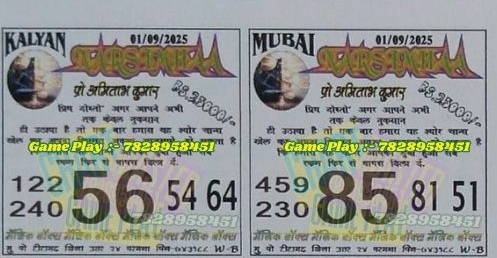 KALYAN 01/09/2025
NARSIMHAA
प्रो अमिताभ कुमार
RS.25000/-
प्रिय दोस्तों अगर आपने अभी
तक केवल नुकसान
ही उठाया है तो एक बार हमारा यह श्योर चान्स
Game Play :- 7828958451
रकम फिर से वापस दिला दें.
122 56 54 64
240
7828958451
मैजिक बॉक्स मैजिक बॉक्स मैजिक बॉक्स मैजिक बॉक्स
मु पो टीटागढ जिला उतर २४ परगना पिन-७४३१८८ W-B
MUBAI 01/09/2025
NARSIMHAA
प्रो अमिताभ कुमार
RS.25000/-
प्रिय दोस्तों अगर आपने अभी
तक केवल नुकसान
ही उठाया है तो एक बार हमारा यह श्योर चान्स
Game Play :- 7828958451
रकम फिर से वापस दिला दें.
459 85 81 51
230
7828958451
मैजिक बॉक्स मैजिक बॉक्स मैजिक बॉक्स मैजिक बॉक्स
मु पो टीटागढ जिला उतर २४ परगना पिन-७४३१८८ W-B